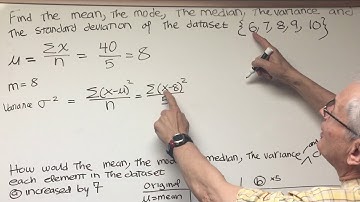 Find the mean, the mode, the median, the variance and
the standard deviation of the dataset {6,7,8,9,10}
μ = Σx/n = 40/5 = 8
m = 8
Variance σ² = Σ(x-μ)²/n = Σ(x-8)²/5
How would the mean, the mo median, the variance and
each element in the dataset
ⓐ increased by 7
original
ⓑ ×5
μ=mean